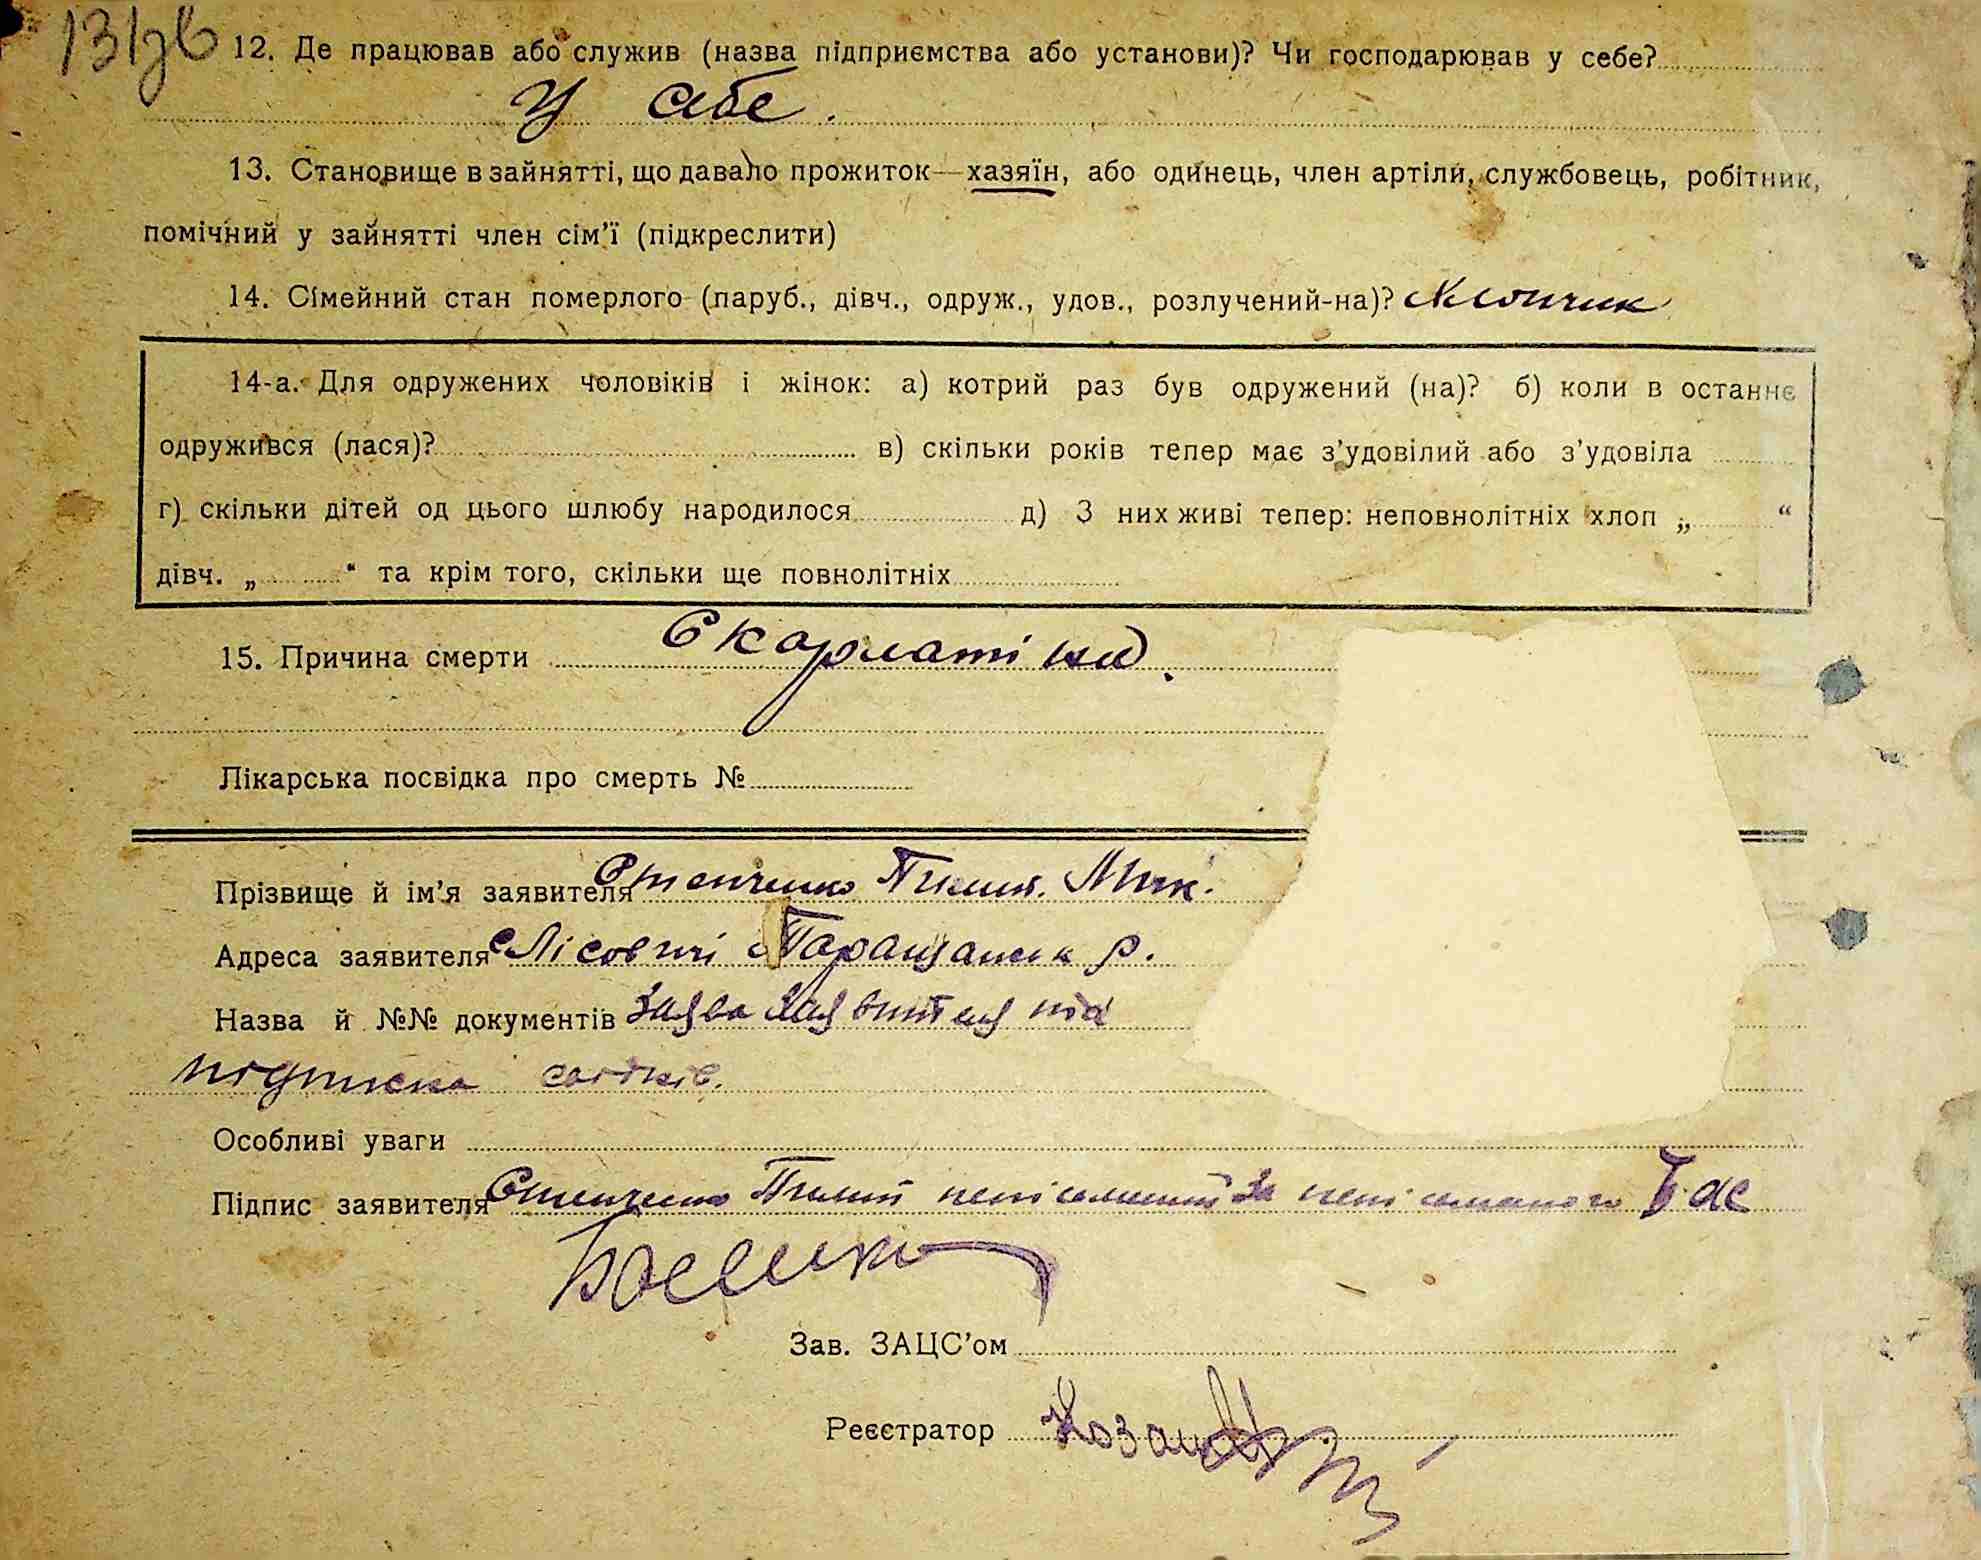 131зв 12. Де працював або служив (назва підприємства або установи)? Чи господарював у себе?
У себе.
13. Становище в зайнятті, що давало прожиток—хазяїн, або одинець, член артіли, службовець, робітник,
помічний у зайнятті член сім'ї (підкреслити)
14. Сімейний стан померлого (паруб., дівч., одруж., удов., розлучений-на)? Хлопчик
14-а. Для одружених чоловіків і жінок: а) котрий раз був одружений (на)? б) коли в останнє
одружився (лася)? в) скільки років тепер має з'удовілий або з'удовіла
г) скільки дітей од цього шлюбу народилося д) З них живі тепер: неповнолітніх хлоп „ “
дівч. „ “ та крім того, скільки ще повнолітніх
15. Причина смерти Скарлатіна.
Лікарська посвідка про смерть №
Прізвище й ім'я заявителя Стенченко Пилип. Мик.
Адреса заявителя с Лісовичі Таращанськ р.
Назва й №№ документів Заява заявителя та
підписка свідків.
Особливі уваги
Підпис заявителя Стенченко Пилип неписьменний За неписьменого
Зав. ЗАЦС'ом
Реєстратор